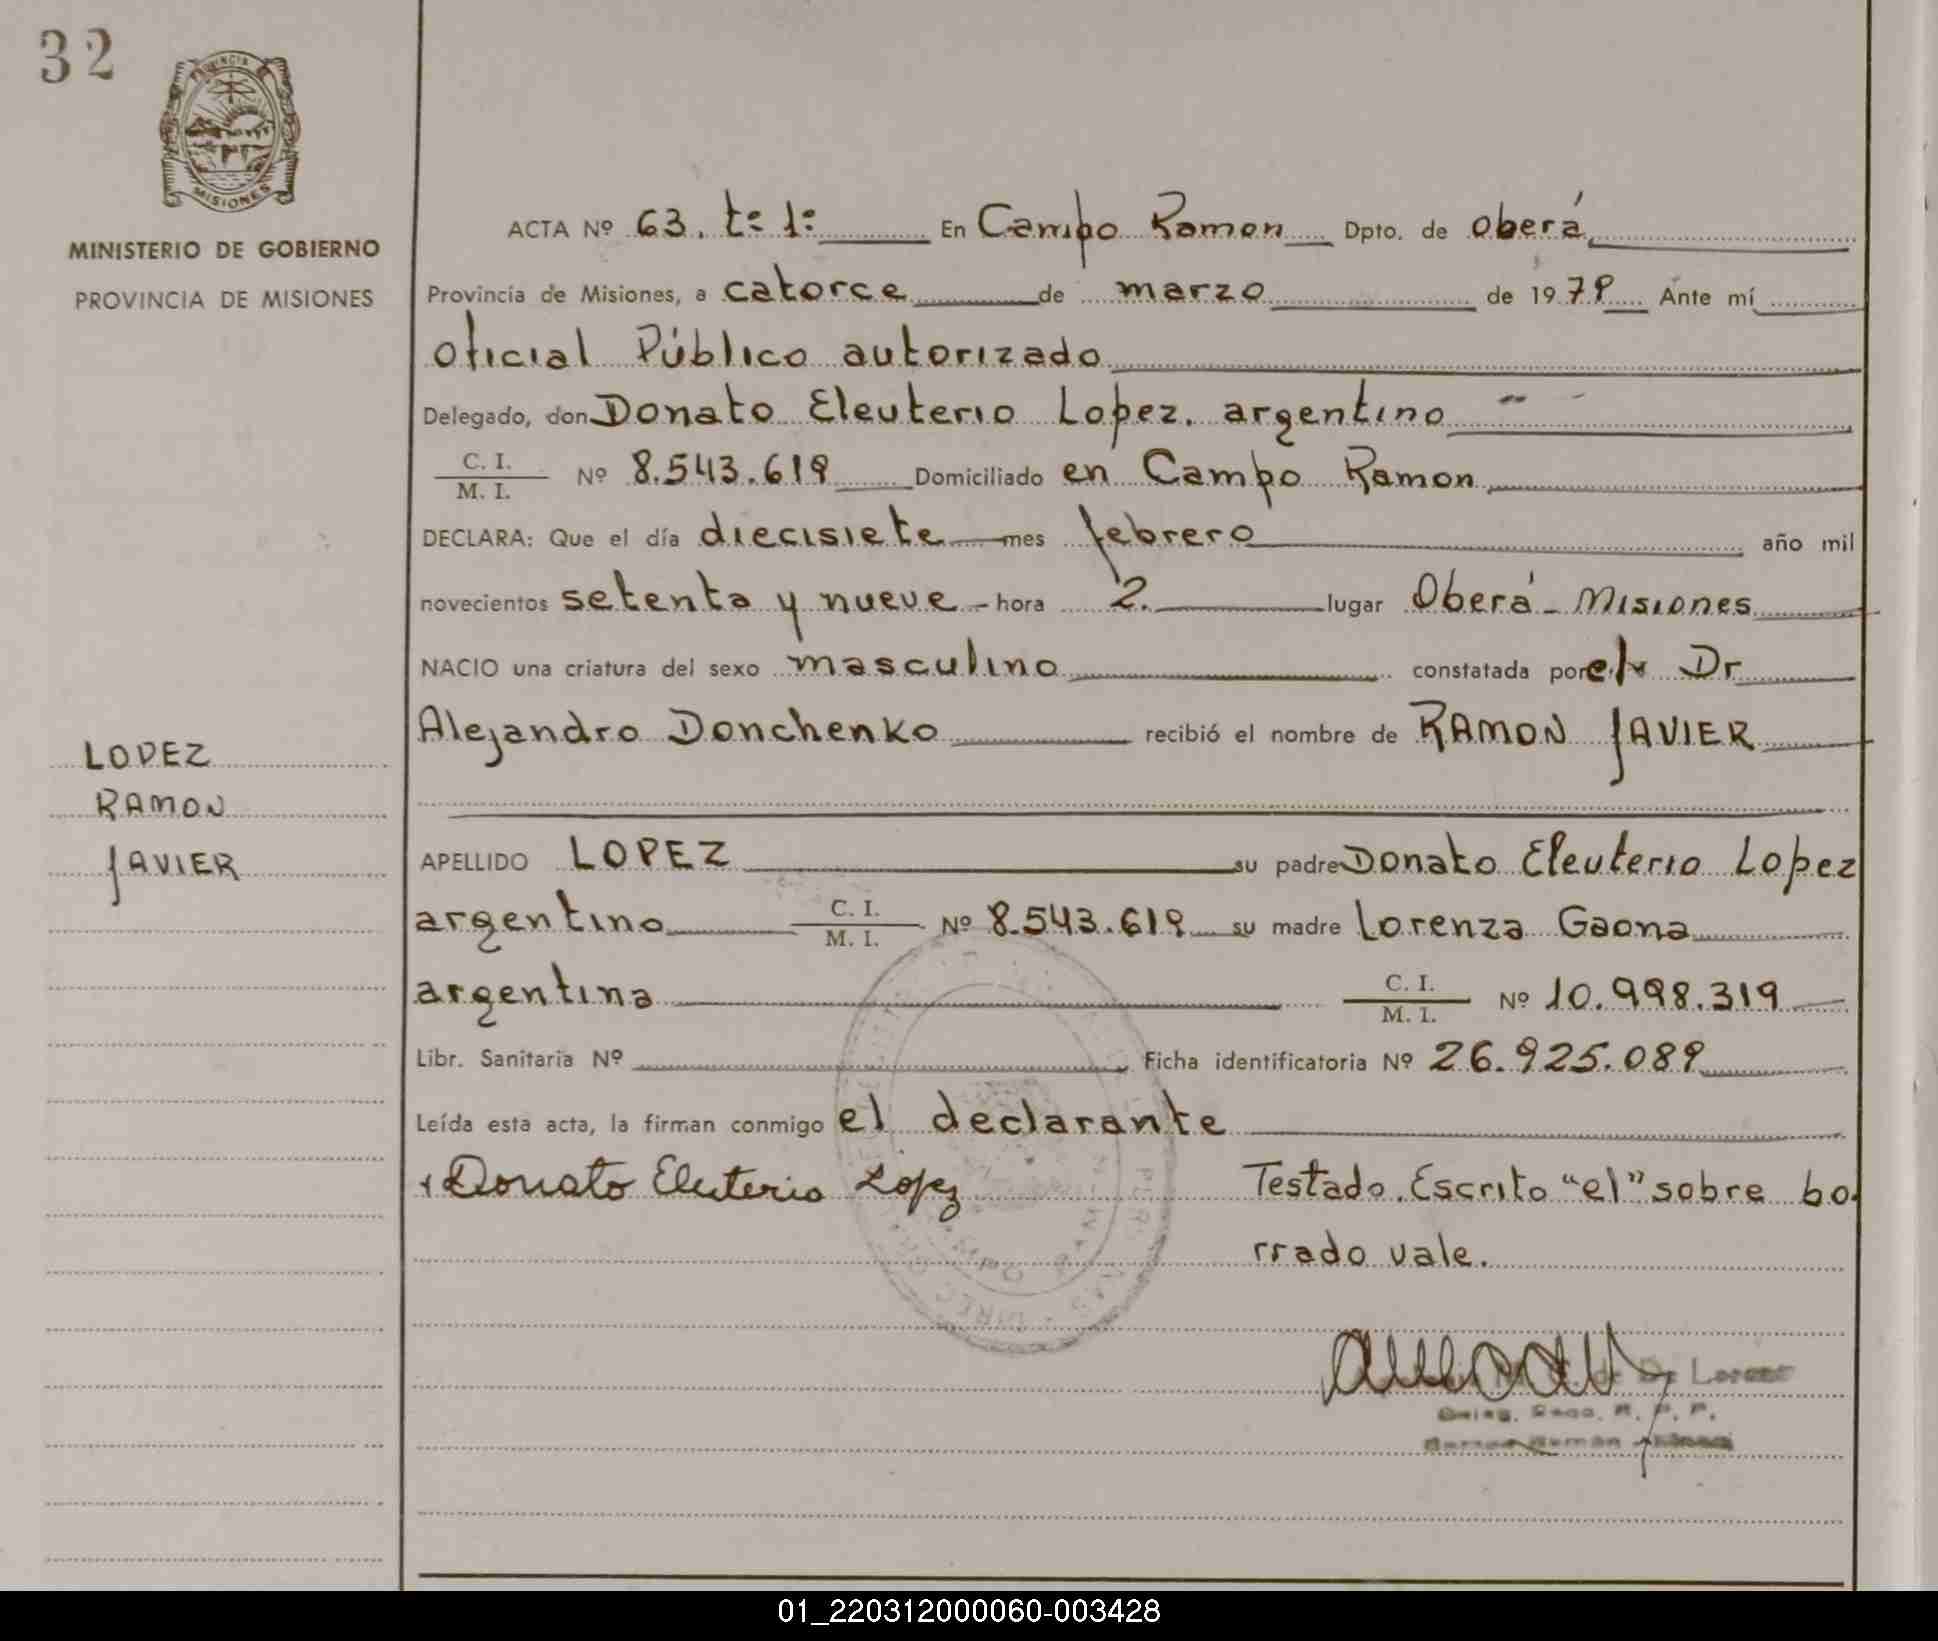 32
PROVINCIA DE
MISIONES
MINISTERIO DE GOBIERNO
PROVINCIA DE MISIONES
LOPEZ
RAMON
JAVIER
ACTA Nº 63. tº 1º En Campo Ramon Dpto. de Oberá
Provincia de Misiones, a catorce de marzo de 1979 Ante mí
Oficial Público autorizado
Delegado, don Donato Eleuterio Lopez. argentino
C. I.
M. I. Nº 8.543.619 Domiciliado en Campo Ramon
DECLARA: Que el día diecisiete mes febrero año mil
novecientos setenta y nueve - hora 2. lugar Oberá - Misiones
NACIO una criatura del sexo masculino constatada por el Dr
Alejandro Donchenko recibió el nombre de RAMON JAVIER
APELLIDO LOPEZ su padre Donato Eleuterio Lopez
argentino C. I. M. I. Nº 8.543.619 su madre Lorenza Gaona
argentina C. I. M. I. Nº 10.998.319
Libr. Sanitaria Nº Ficha identificatoria Nº 26.925.089
Leída esta acta, la firman conmigo el declarante
Donato Eleuterio López Testado. Escrito "el" sobre bo
rrado vale.
de De
R. P. P.
01_220312000060-003428